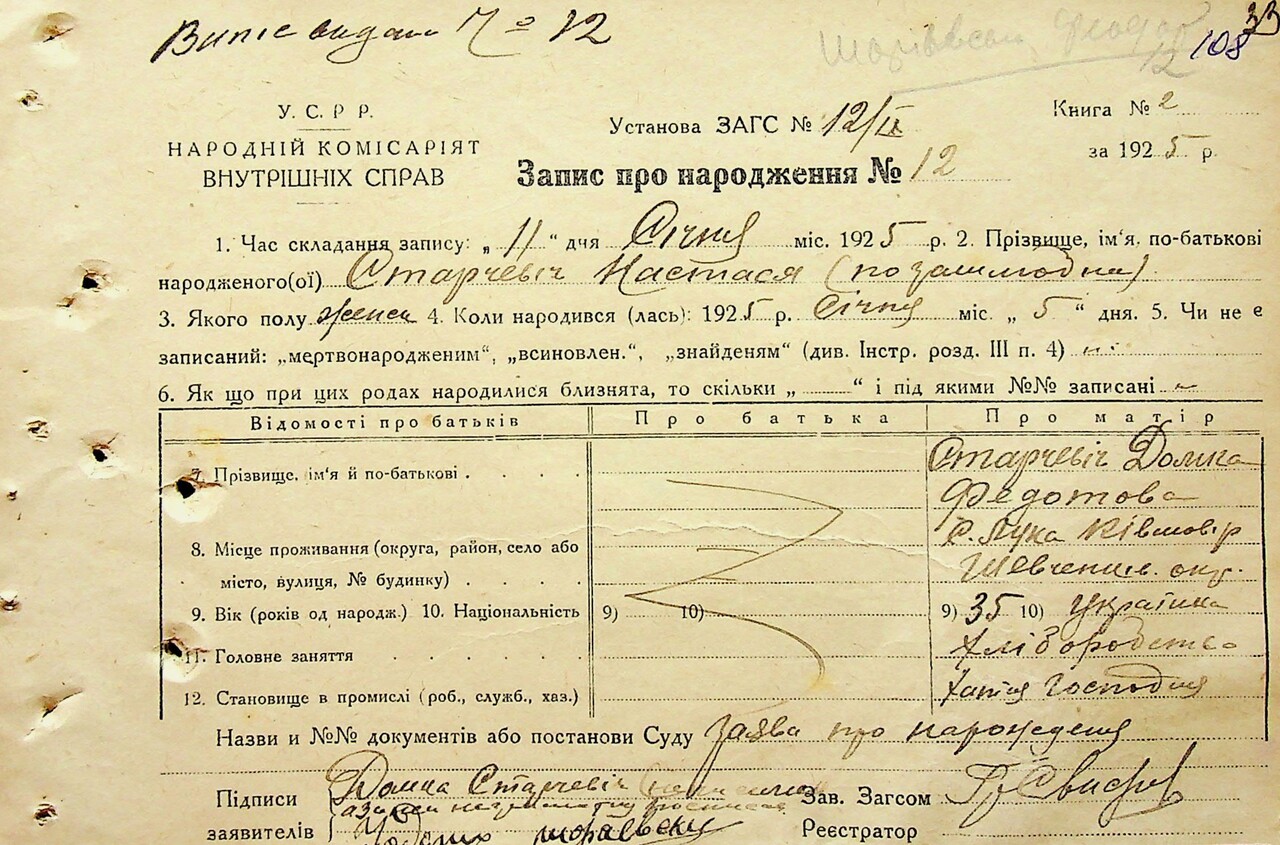 Випис видано № 12
108 33
У. С. Р. Р.
НАРОДНІЙ КОМІСАРІЯТ
ВНУТРІШНІХ СПРАВ
Установа ЗАГС № 12/II
Книга № 2
за 1925 р.
Запис про народження № 12
1. Час складання запису: „ 11 “ дчя Січня міс. 1925 р. 2. Прізвище, ім'я, по-батькові
народженого(ої) Старчевіч Настася (позашлюбна)
3. Якого полу жіноч 4. Коли народився (лась): 1925 р. Січня міс. „ 5 “ дня. 5. Чи не є
записаний: „мертвонародженим“, „всиновлен.“, „знайденям“ (див. Інстр. розд. III п. 4)
6. Як що при цих родах народилися близнята, то скільки „ “ і під якими №№ записані -
Відомості про батьків Про батька Про матір
7. Прізвище, ім'я й по-батькові . . . . Старчевіч Домка
Федотова
8. Місце проживання (округа, район, село або с. Лука
місто, вулиця, № будинку) . . . . Шевченк. окр.
9. Вік (років од народж.) 10. Національність 9) 10) 9) 35 10) Украінка
11. Головне заняття . . . . . Хліборобство
12. Становище в промислі (роб., служб., хаз.) Хатня Господиня
Назви и №№ документів або постанови Суду Заява про народженя
Підписи Домка Старчевіч Зав. Загсом
заявителів Реєстратор